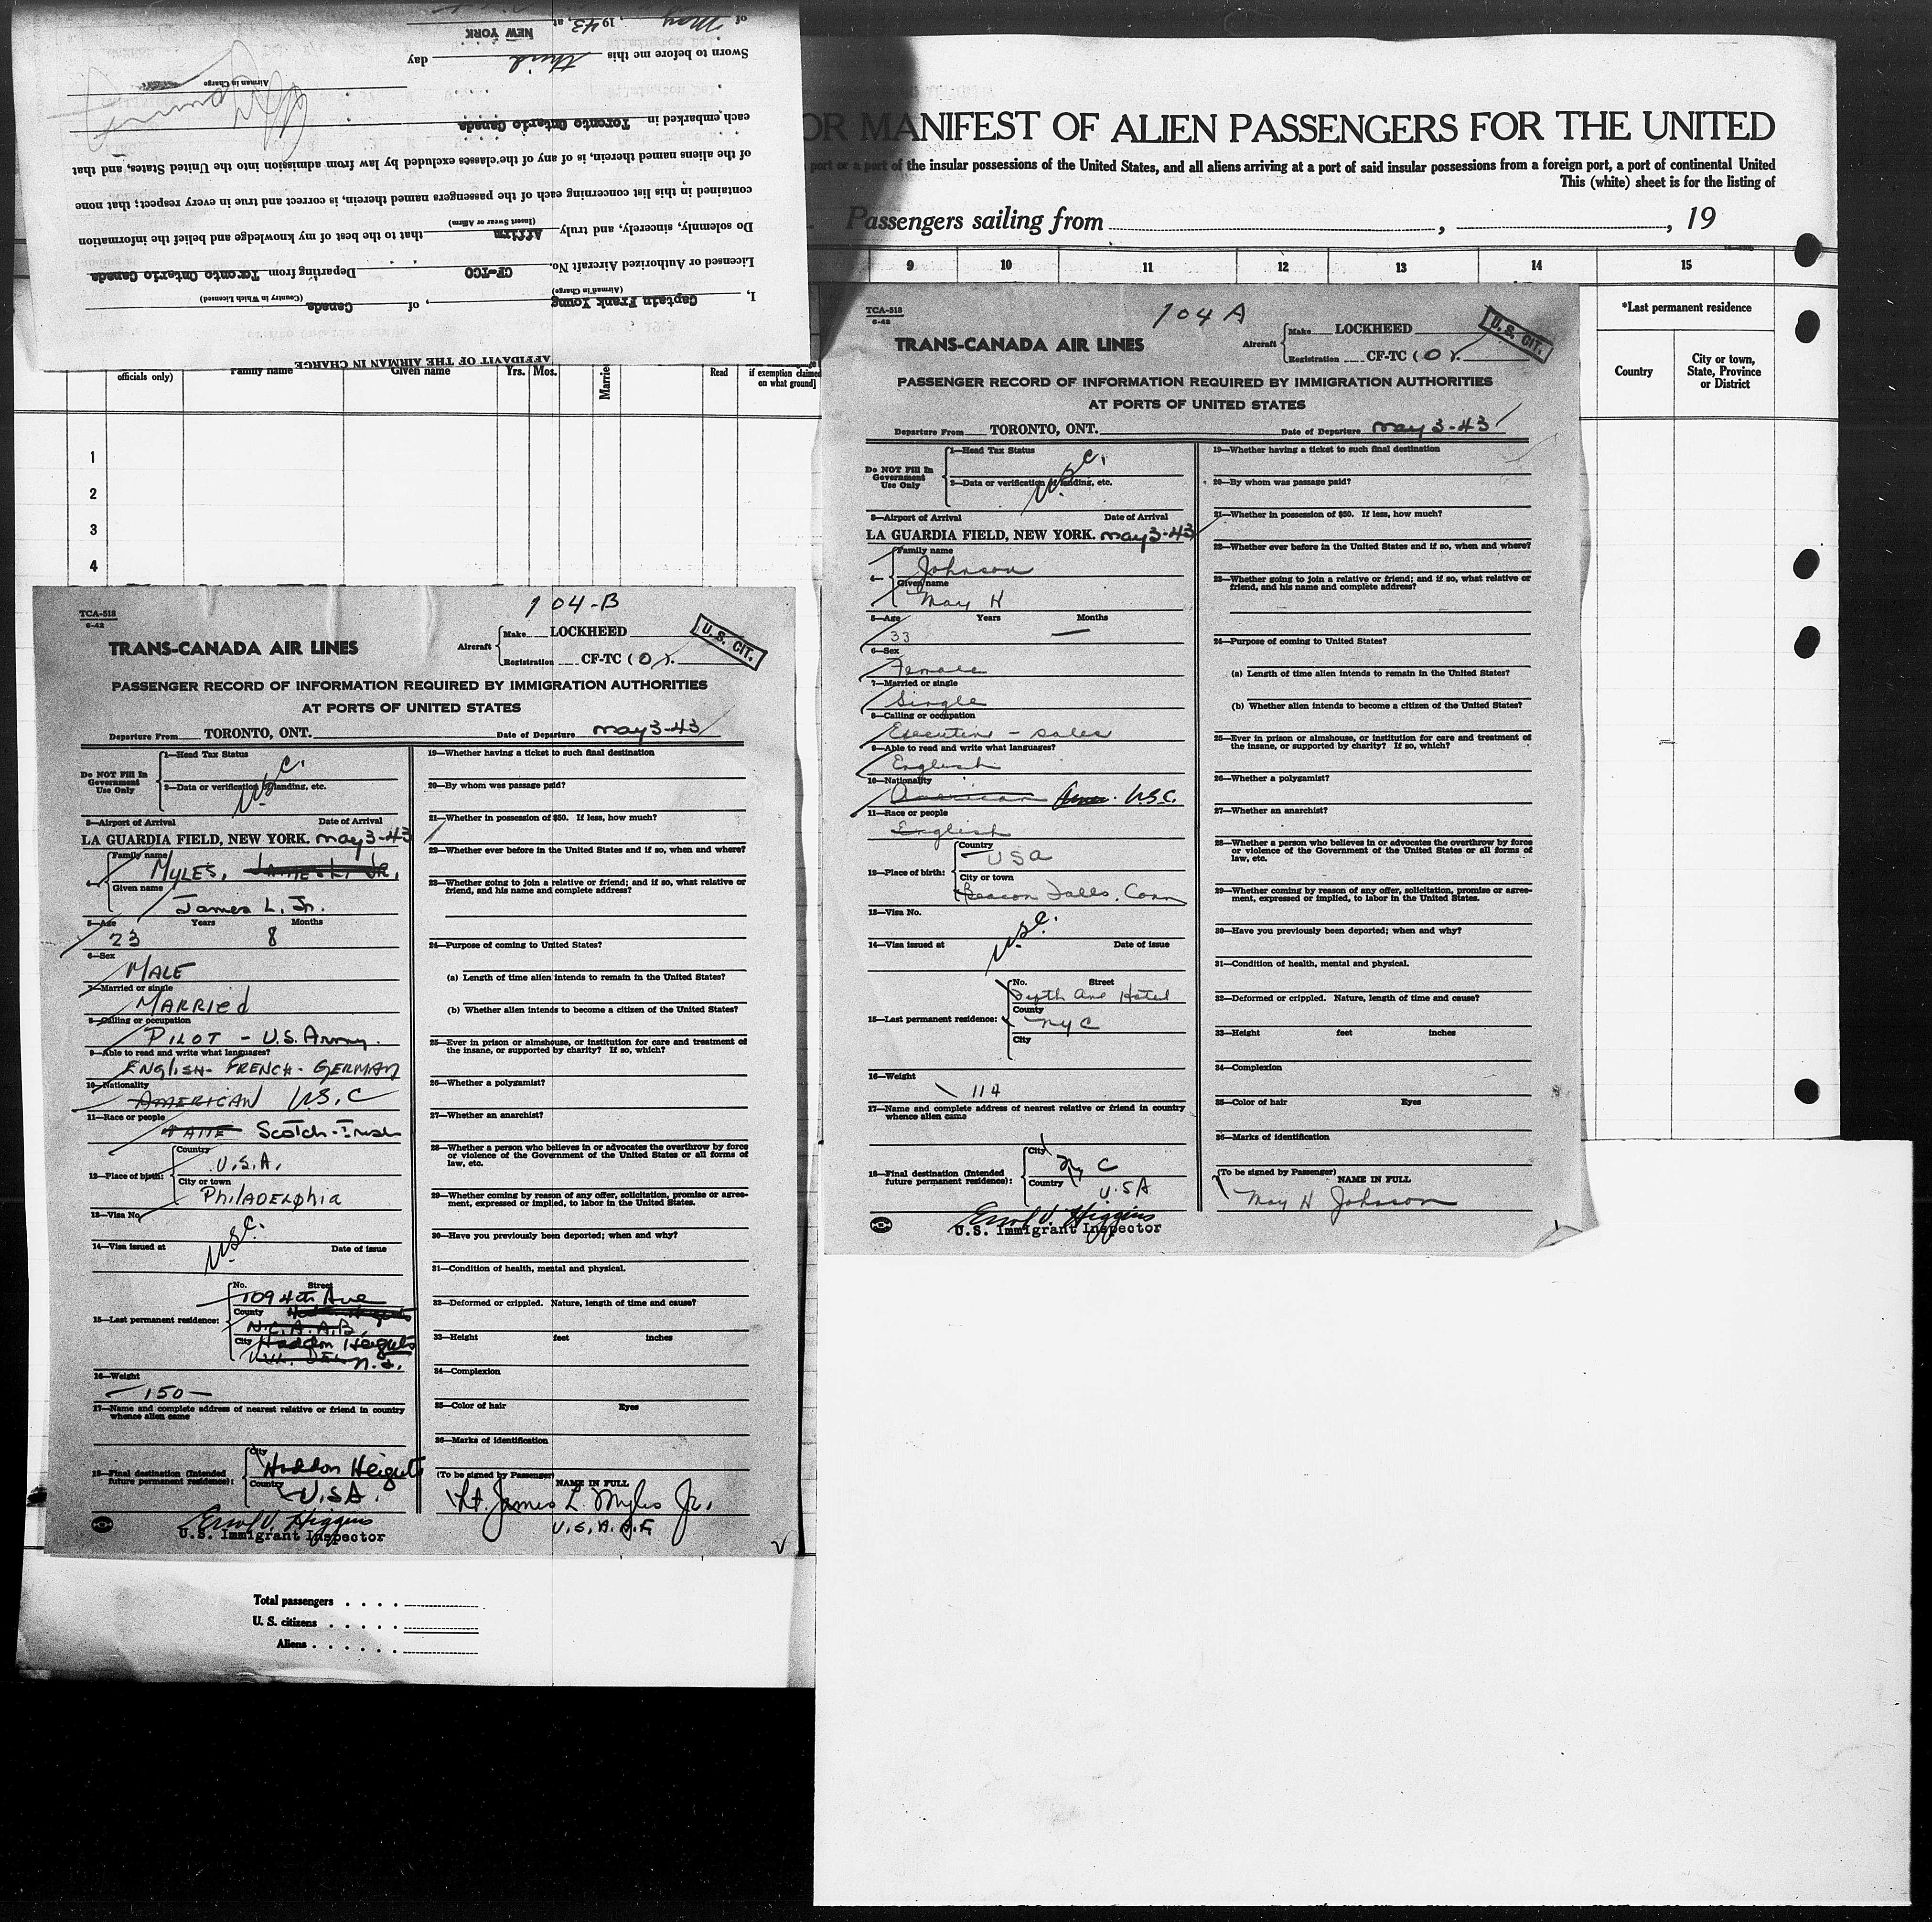 AFFIDAVIT OF THE AIRMAN IN CHARGE
I, Captain Frank Young, of Canada
(Airman in Charge) (Country in Which Licensed)
Licensed or Authorized Aircraft No. CF-TCO Departing from Toronto Ontario Canada
Do solemnly, sincerely, and truly Affirm that to the best of my knowledge and belief the information
(Insert Swear or Affirm)
contained in this list concerning each of the passengers named therein, is correct and true in every respect; that none
of the aliens named therein, is of any of the classes excluded by law from admission into the United States, and that
each embarked in Toronto Ontario Canada
Airman in Charge
Sworn to before me this third day
of May, 1943, at NEW YORK
OR MANIFEST OF ALIEN PASSENGERS FOR THE UNITED
port or a part of the insular possessions of the United States, and all aliens arriving at a port of said insular possessions from a foreign port, a port of continental United
This (white) sheet is for the listing of
Passengers sailing from , , 19
9 10 11 12 13 14 15
*Last permanent residence
Country City or town, State, Province or District
officials only) Family name Given name Yrs. Mos. Married Read if exemption claimed on what ground]
1
2
3
4
104-B
TCA-518
6-42
TRANS-CANADA AIR LINES
Aircraft Make LOCKHEED
Registration CF-TC (O).
U.S. CIT.
PASSENGER RECORD OF INFORMATION REQUIRED BY IMMIGRATION AUTHORITIES
AT PORTS OF UNITED STATES
Departure From TORONTO, ONT. Date of Departure May 3-43
Do NOT Fill In Government Use Only
1—Head Tax Status
2—Data or verification of landing, etc.
USC.
3—Airport of Arrival Date of Arrival
LA GUARDIA FIELD, NEW YORK. May 3-43
4— Family name
MYLES,
Given name
James L. Jr.
5—Age Years Months
23 8
6—Sex
MALE
7—Married or single
MARRIED
8—Calling or occupation
PILOT - U.S. Army.
9—Able to read and write what languages?
ENGLISH- FRENCH- GERMAN
10—Nationality
AMERICAN U.S.C
11—Race or people
Scotch-Irish
12—Place of birth:
Country
U.S.A.
City or town
PhilADElphia
13—Visa No.
USC.
14—Visa issued at Date of issue
15—Last permanent residence:
No. Street
109 4th Ave
County
N.C.A.A.B.
City Haddon Heights
N.J.
16—Weight
150
17—Name and complete address of nearest relative or friend in country
whence alien came
18—Final destination (Intended
future permanent residence):
City
Haddon Heights
Country
U.S.A.
Errol V. Higgins
U.S. Immigrant Inspector
19—Whether having a ticket to such final destination
20—By whom was passage paid?
21—Whether in possession of $50. If less, how much?
22—Whether ever before in the United States and if so, when and where?
23—Whether going to join a relative or friend; and if so, what relative or
friend, and his name and complete address?
24—Purpose of coming to United States?
(a) Length of time alien intends to remain in the United States?
(b) Whether alien intends to become a citizen of the United States?
25—Ever in prison or almshouse, or institution for care and treatment of
the insane, or supported by charity? If so, which?
26—Whether a polygamist?
27—Whether an anarchist?
28—Whether a person who believes in or advocates the overthrow by force
or violence of the Government of the United States or all forms of
law, etc.
29—Whether coming by reason of any offer, solicitation, promise or agree-
ment, expressed or implied, to labor in the United States.
30—Have you previously been deported; when and why?
31—Condition of health, mental and physical.
32—Deformed or crippled. Nature, length of time and cause?
33—Height feet inches
34—Complexion
35—Color of hair Eyes
36—Marks of identification
(To be signed by Passenger) NAME IN FULL
Lt. James L. Myles Jr.
U.S.A.A.F.
Total passengers . . . .
U. S. citizens . . . . .
Aliens . . . . . .
104 A
TCA-518
6-42
TRANS-CANADA AIR LINES
Aircraft Make LOCKHEED
Registration CF-TC (O).
U.S. CIT.
PASSENGER RECORD OF INFORMATION REQUIRED BY IMMIGRATION AUTHORITIES
AT PORTS OF UNITED STATES
Departure From TORONTO, ONT. Date of Departure May 3-43
Do NOT Fill In Government Use Only
1—Head Tax Status
2—Data or verification of landing, etc.
USC.
3—Airport of Arrival Date of Arrival
LA GUARDIA FIELD, NEW YORK. May 3-43
4— Family name
Johnson
Given name
May H
5—Age Years Months
33 —
6—Sex
Female
7—Married or single
Single
8—Calling or occupation
Executive - sales
9—Able to read and write what languages?
English
10—Nationality
American Amer. U.S.C.
11—Race or people
English
12—Place of birth:
Country
USA
City or town
Beacon Falls, Conn
13—Visa No.
USC.
14—Visa issued at Date of issue
15—Last permanent residence:
No. Street
Ave Hotel
County
NYC
City
16—Weight
114
17—Name and complete address of nearest relative or friend in country
whence alien came
18—Final destination (Intended
future permanent residence):
City
Ny C
Country
USA
Errol V. Higgins
U.S. Immigrant Inspector
19—Whether having a ticket to such final destination
20—By whom was passage paid?
21—Whether in possession of $50. If less, how much?
22—Whether ever before in the United States and if so, when and where?
23—Whether going to join a relative or friend; and if so, what relative or
friend, and his name and complete address?
24—Purpose of coming to United States?
(a) Length of time alien intends to remain in the United States?
(b) Whether alien intends to become a citizen of the United States?
25—Ever in prison or almshouse, or institution for care and treatment of
the insane, or supported by charity? If so, which?
26—Whether a polygamist?
27—Whether an anarchist?
28—Whether a person who believes in or advocates the overthrow by force
or violence of the Government of the United States or all forms of
law, etc.
29—Whether coming by reason of any offer, solicitation, promise or agree-
ment, expressed or implied, to labor in the United States.
30—Have you previously been deported; when and why?
31—Condition of health, mental and physical.
32—Deformed or crippled. Nature, length of time and cause?
33—Height feet inches
34—Complexion
35—Color of hair Eyes
36—Marks of identification
(To be signed by Passenger) NAME IN FULL
May H Johnson